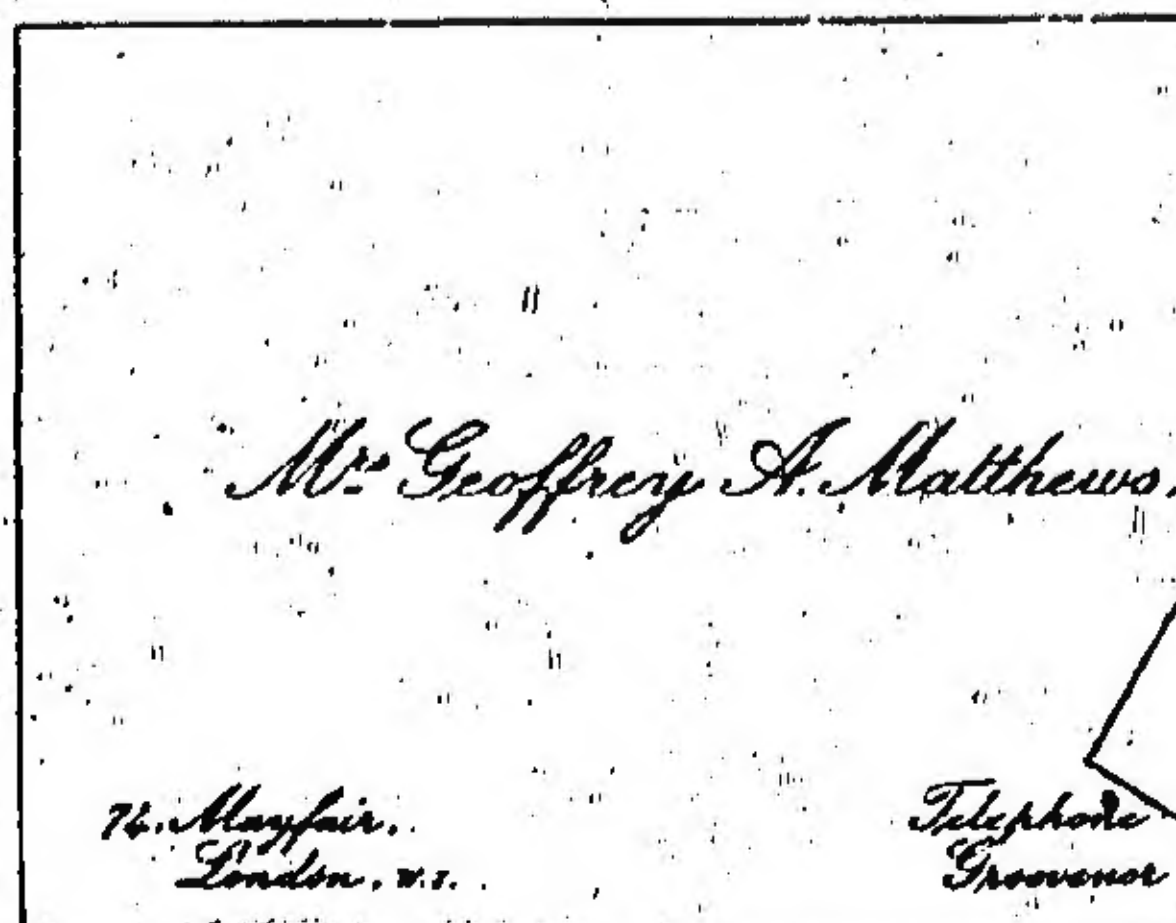 Mrs Geoffrey A. Matthews.
74, Mayfair,
London, W.1.
Telephone
Grosvenor